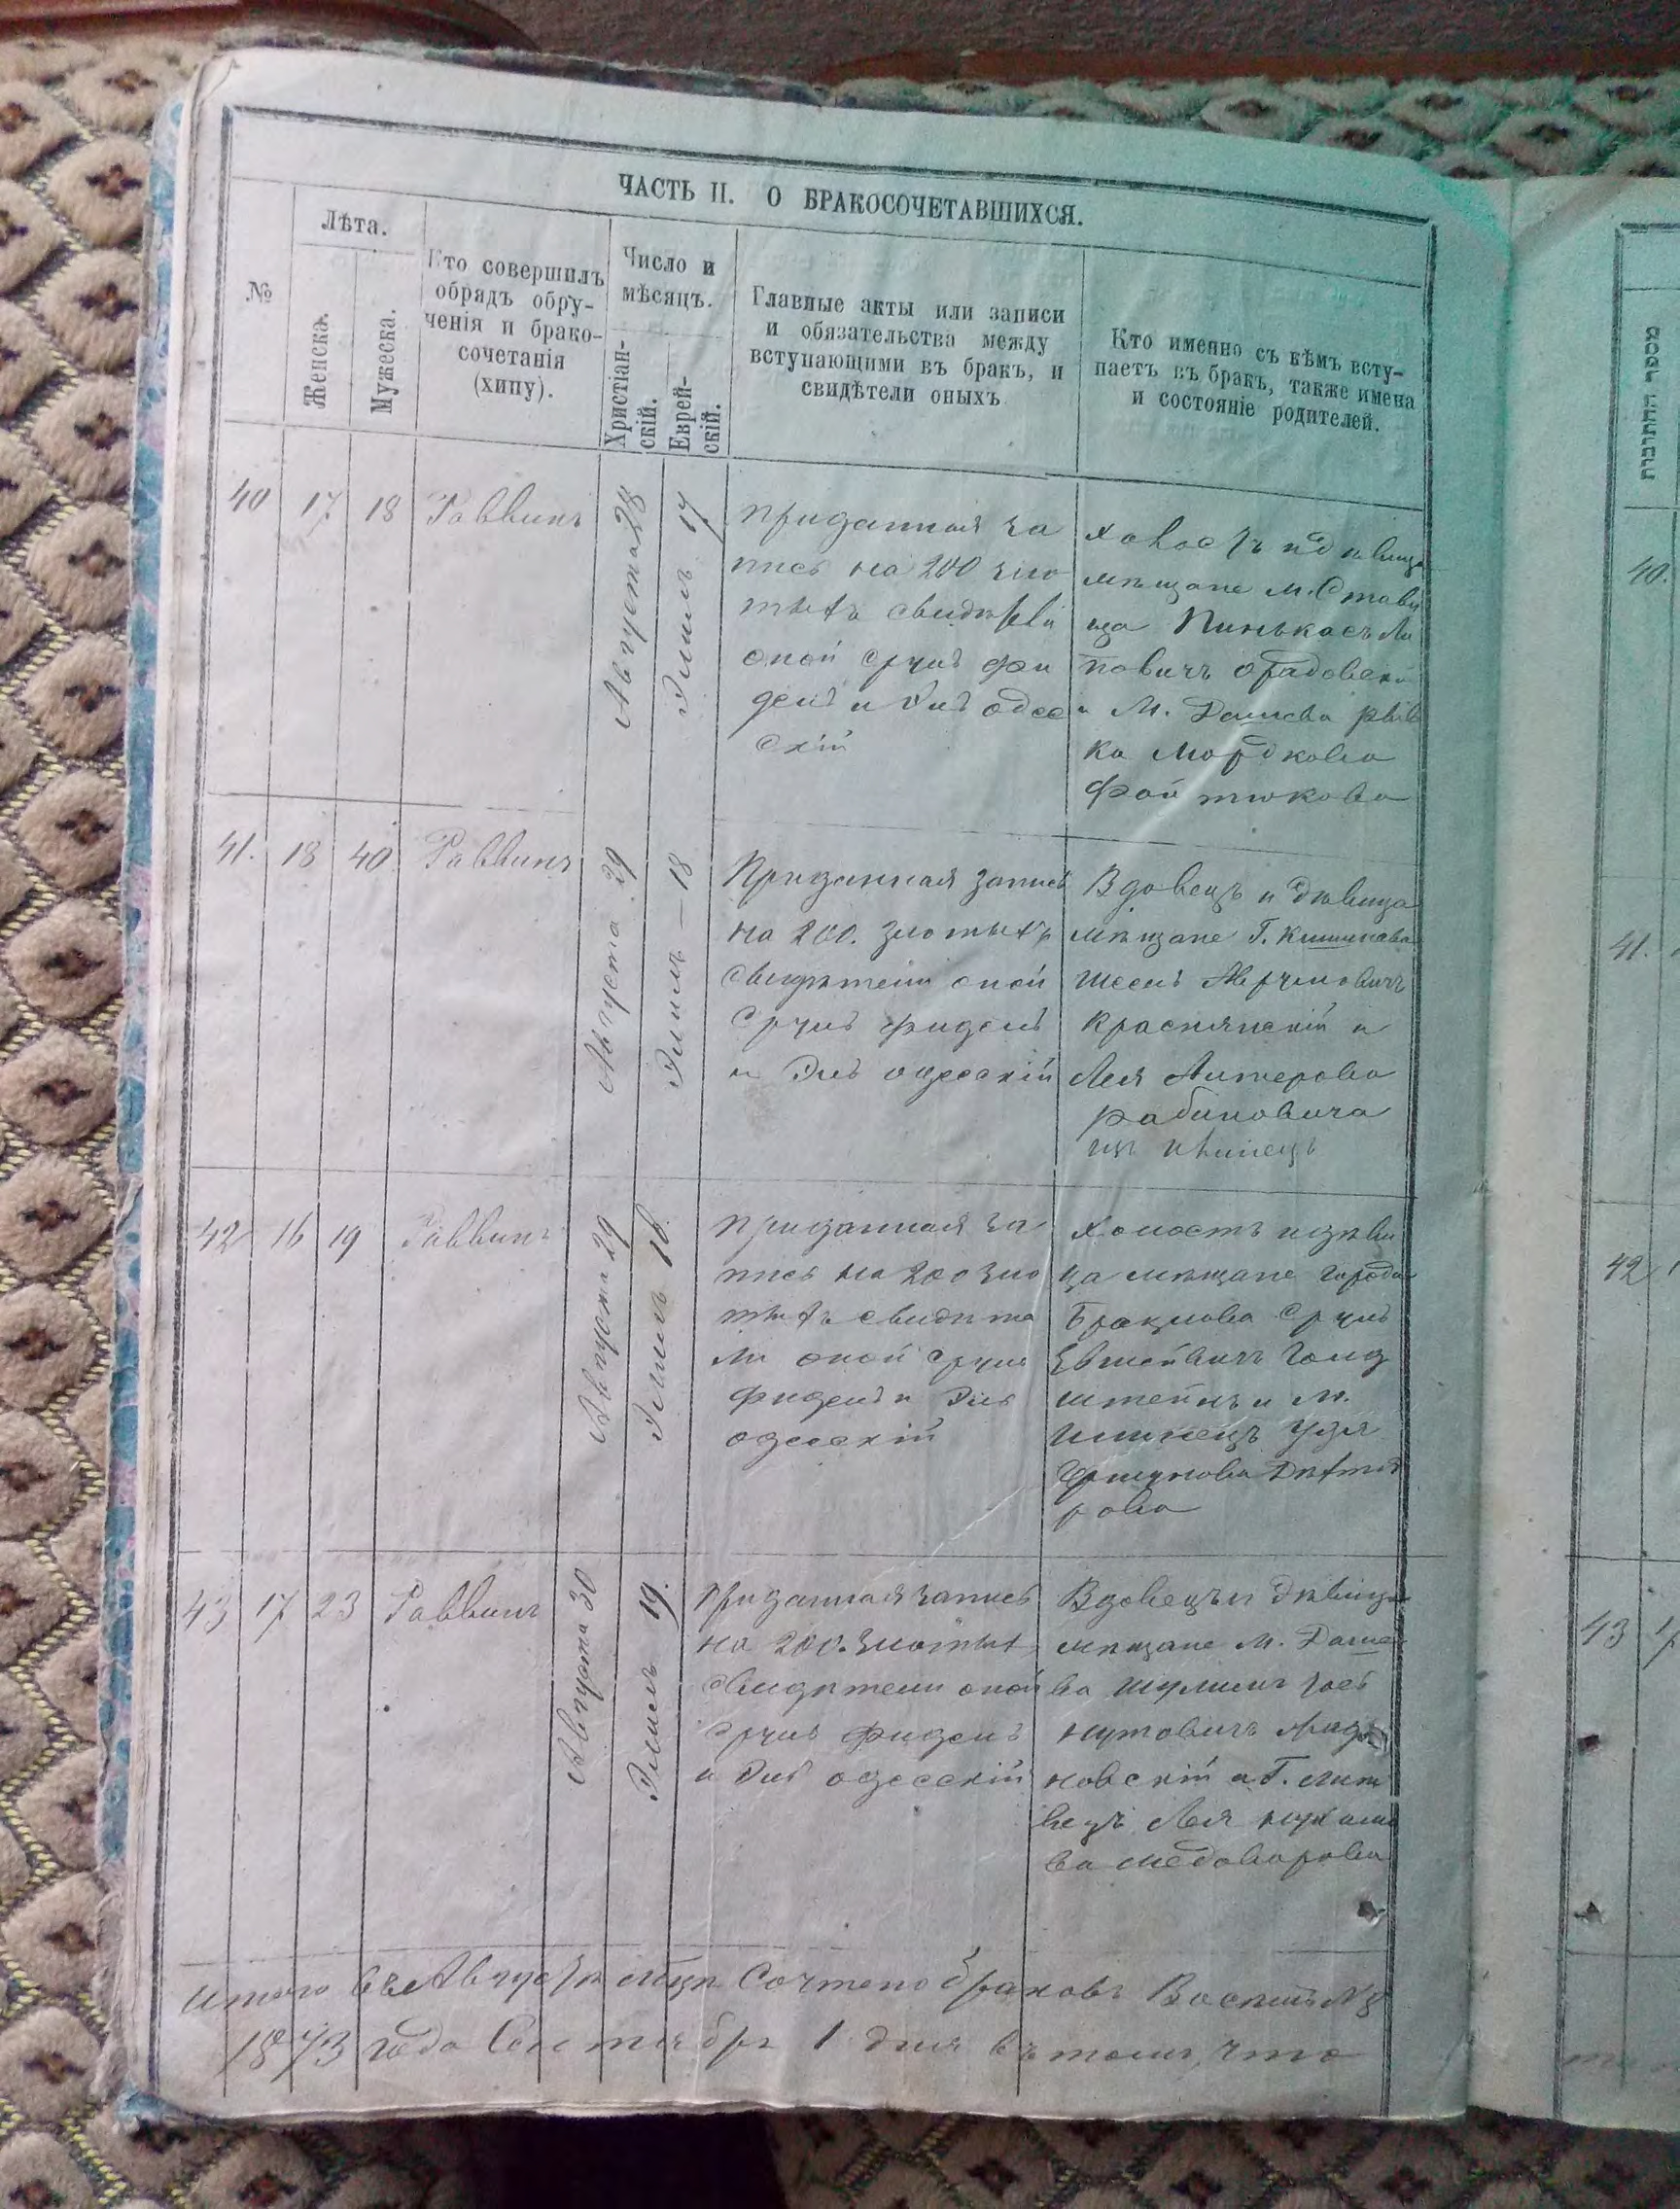 ЧАСТЬ II. О БРАКОСОЧЕТАВШИХСЯ.
№
Лѣта.
Женска.
Мужеска.
Кто совершилъ
обрядъ обру-
ченія и брако-
сочетанія
(хипу).
Число и
мѣсяцъ.
Христіан-
скій.
Еврей-
скій.
Главные акты или записи
и обязательства между
вступающими въ бракъ, и
свидѣтели оныхъ
Кто именно съ кѣмъ всту-
паетъ въ бракъ, также имена
и состояніе родителей.
40 17 18 Раввинъ
Августа 28
Элилъ 17
приданная за
пись на 200 зло
тыхъ свидѣтели
оной Сруль Фи
дель и Эль одес
скій
холостъ и дѣвица
мѣщане м. Стави
ща Пинькасъ
и М. Дашева
ка Мордкова
41. 18 40. Раввинъ
Августа 29
Элилъ - 18
Приданная запись
на 200. злотыхъ
свидѣтели оной
Сруль Фидель
и Эль одесскій
Вдовецъ и дѣвица
мѣщане Г. Кишинева
Краснянскій и
Лея Алтерова
рабиновича
42 16 19 Раввинъ
Августа 29
Элилъ 18.
приданная за
пись на 200 зло
тыхъ свидѣте
ли оной Сруль
Фидель и Эль
одесскій
Холостъ и дѣви
ца мѣщане города
Брацлова Сруль
Голд
штейнъ и м.
рова
43 17 23 Раввинъ
Августа 30
Элилъ 19.
приданная запись
на 200. злотых
свидѣтели оной
Сруль Фидель
и Эль одесскій
Вдовецъ и дѣвица
мѣщане м. Даше
ва
новскій и Г. Лип
вецъ Лея
ва медоварова
итого въ Августѣ мцѣ Сочтено браковъ Восемь № 8
1873 года Сентября 1 дня въ томъ, что
מספר החתונות
40.
41.
42
43